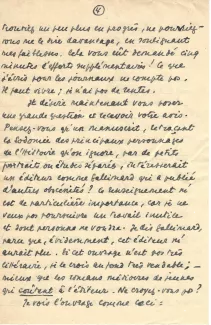 (4)
trouviez un peu plus en progrès, ne pourriez-
vous me le dire davantage, en soulignant
mes faiblesses. Cela vous eût demandé cinq
minutes d'effort supplémentaire! Ce que
j'écris pour les journaux ne compte pas.
Il faut vivre; je n'ai pas de rentes.
Je désire maintenant vous poser
une grande question et recevoir votre avis.
Pensez-vous qu'un manuscrit, retraçant
la des principaux personnages
de l'Histoire qu'on ignore, par de petits
portraits ou études séparés, intéresserait
un éditeur comme Gallimard qui a publié
d'autres obscénités? Ce renseignement m'
est de particulière importance, car je ne
veux pas poursuivre un travail inutile
et dont personne ne voudra. Je dis Gallimard,
parce que, évidemment, cet éditeur m'
aurait plu. Si cet ouvrage n'est pas très
littéraire, je le crois au fond très vendable; —
mieux que les romans médiocres de jeunes
qui coûtent à l'éditeur. Ne croyez-vous pas?
Je vois l'ouvrage comme ceci: —